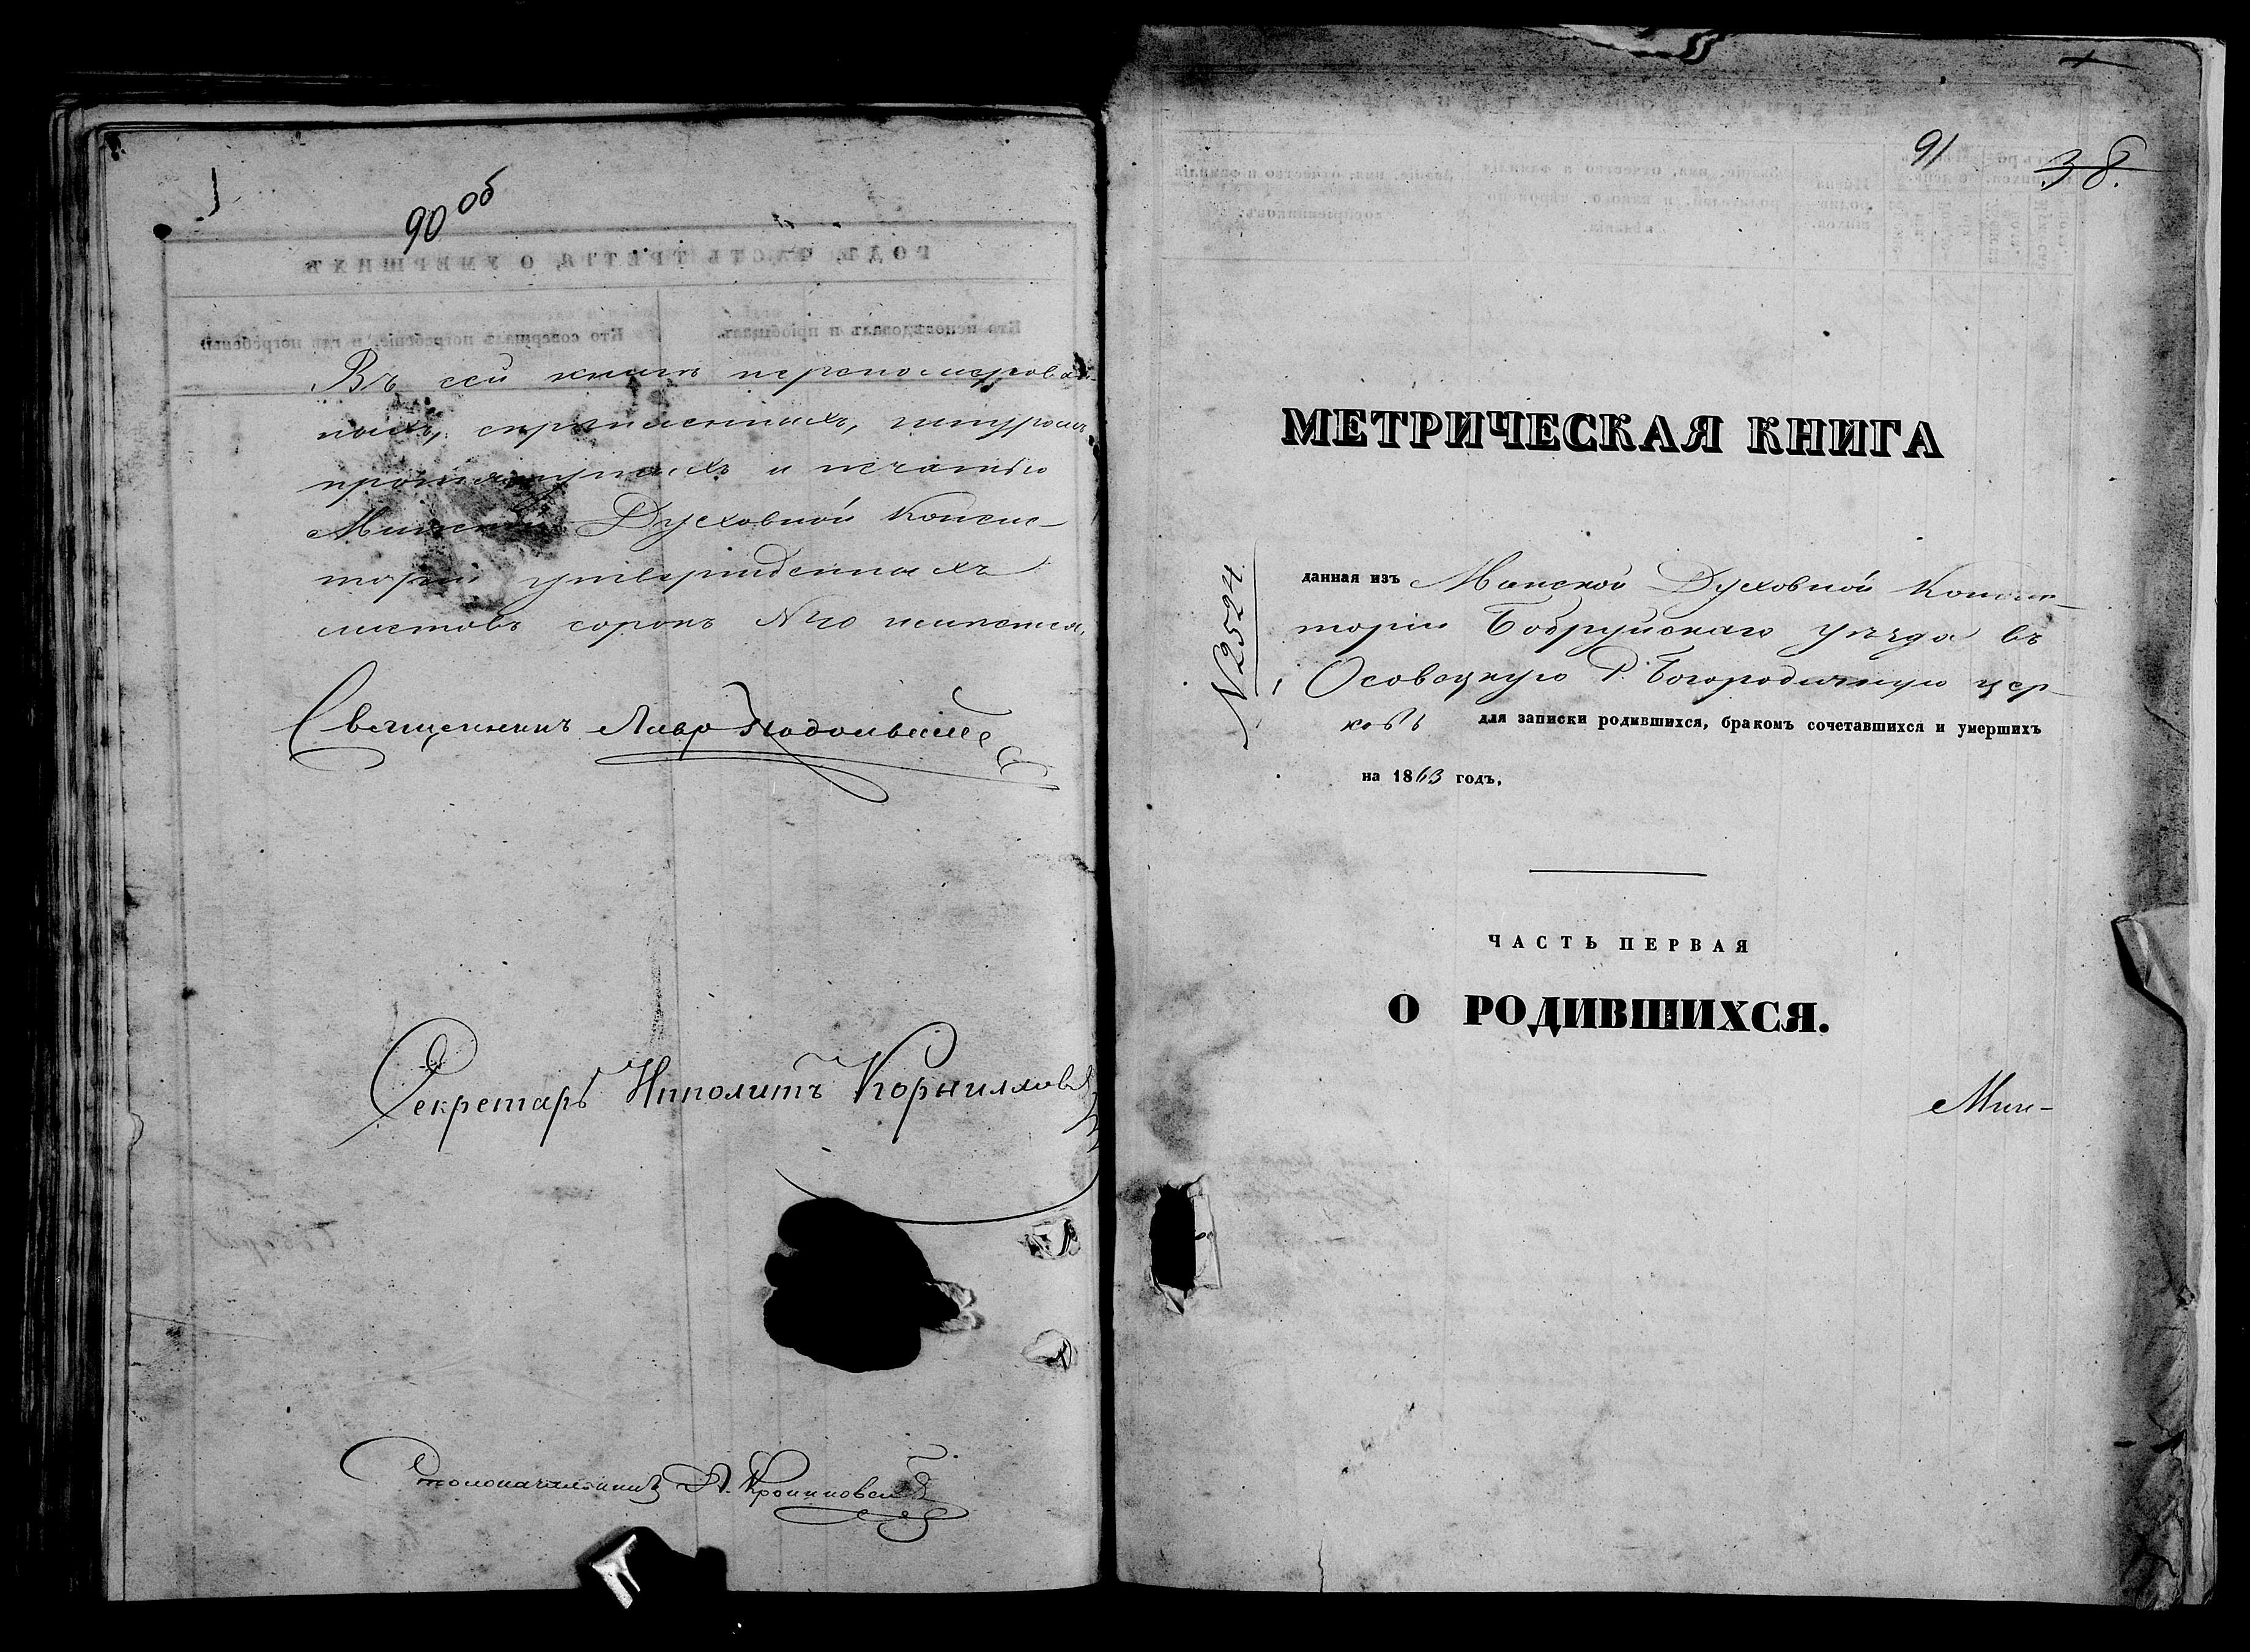 90 об
Въ сей книгѣ перенумерован-
ныхъ, скрѣпленныхъ, шнуромъ
протянутыхъ и печатью
Минской Духовной Консис-
торіи утвержденныхъ
листовъ сорокъ №40
Священникъ Лавр
Секретарь Ипполитъ Корниловъ
Столоначальникъ А.
91
38.
МЕТРИЧЕСКАЯ КНИГА
N 2524
данная изъ Минской Духовной Консис-
торіи Бобруйскаго уѣзда въ
Осовецкую Р. Богородичную цер-
ковь для записки родившихся, бракомъ сочетавшихся и умершихъ
на 1863 годъ.
ЧАСТЬ ПЕРВАЯ
О РОДИВШИХСЯ.
Мин-